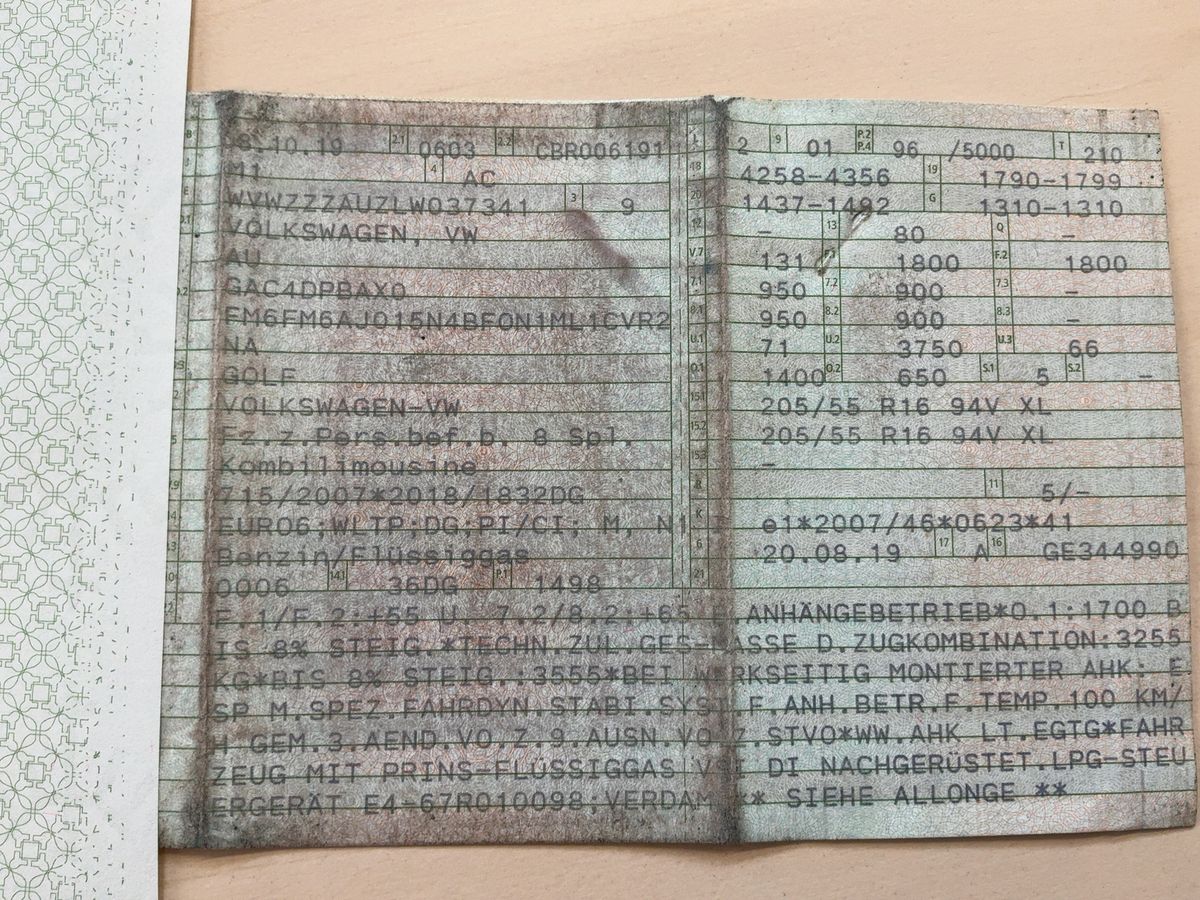 .10.19 2.1 0603 2.2 CBR006191 L 2 9 01 P.2 P.4 96 /5000 T 210
M1 4 AC 18 4258-4356 19 1790-1799
WVWZZZAUZLW037341 3 9 20 1437-1492 G 1310-1310
VOLKSWAGEN, VW 12 - 13 80 Q -
AU V.7 131 F.1 1800 F.2 1800
GAC4DPBAX0 7.1 950 7.2 900 7.3 -
FM6FM6AJ015N4BFON1ML1CVR2 8.1 950 8.2 900 8.3 -
NA U.1 71 U.2 3750 U.3 66
GOLF O.1 1400 O.2 650 S.1 5 S.2 -
VOLKSWAGEN-VW 15.1 205/55 R16 94V XL
Fz.z.Pers.bef.b. 8 Spl. 15.2 205/55 R16 94V XL
Kombilimousine 15.3 -
715/2007*2018/1832DG R 11 5/-
EURO6;WLTP;DG;PI/CI; M, N1 I K e1*2007/46*0623*41
Benzin/Flüssiggas 6 20.08.19 17 A 16 GE344990
0006 14.1 36DG P.1 1498 21
F.1/F.2:+55 U. 7.2/8.2:+65 ANHÄNGEBETRIEB*O.1:1700 B
IS 8% STEIG.*TECHN.ZUL.GES- D.ZUGKOMBINATION:3255
KG*BIS 8% STEIG.:3555*BEI MONTIERTER AHK: E
SP M.SPEZ.FAHRDYN.STABI.SYST.F.ANH.BETR.F.TEMP.100 KM/
H GEM.3.AEND.VO.Z.9.AUSN.VO Z.STVO*WW.AHK LT.EGTG*FAHR
ZEUG MIT PRINS-FLÜSSIGGAS DI NACHGERÜSTET.LPG-STEU
ERGERÄT E4-67R010098;VERDAM ** SIEHE ALLONGE **